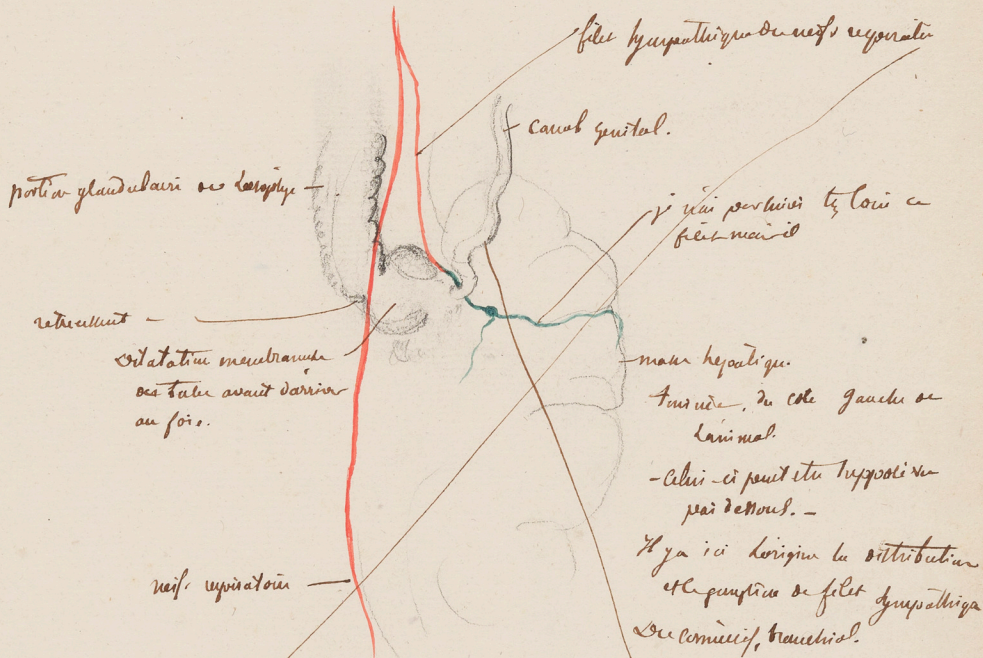 filet sympathique du nerf respiratoire
canal genital.
portion glandulaire de l'œsophage
je n'ai pas suivi très loin ce
filet nerveux
retrecissement
Dilatation membraneuse
du tube avant d'arriver
au foie.
masse hepatique.
tournée, du coté gauche de
l'animal.
- Celui-ci peut etre supposé vu
par dessous. -
Il y a ici l'origine la distribution
et le ganglion de filet sympathique
nerf respiratoire
Du branchial.